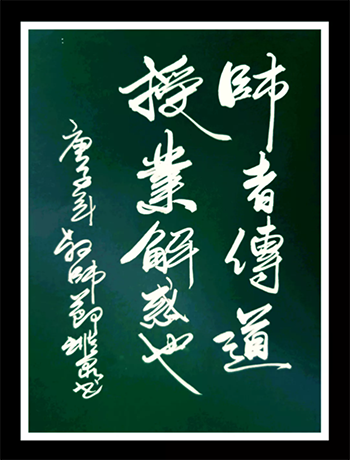 師者傳道
授業解惑也
庚子年教師節